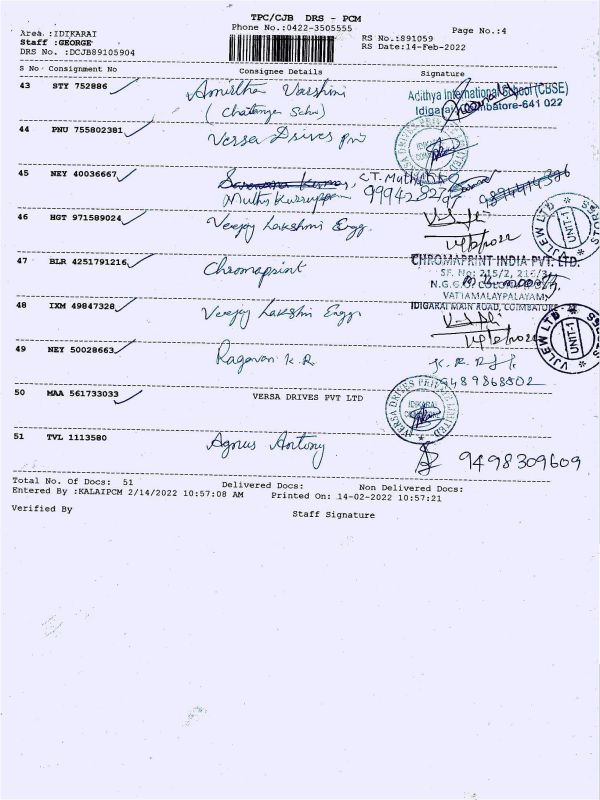 TPC/CJB DRS - PCM
Phone No.:0422-3505555
Page No.:4
Area :IDIKARAI
Staff :GEORGE
DRS No. :DCJB89105904
RS No.:891059
RS Date:14-Feb-2022
S No Consignment No Consignee Details Signature
43 STY 752886 Amirtha Varshini
Adithya International School (CBSE)
Idigarai, Coimbatore-641 022
44 PNU 755802381 Versa Drives pvt
45 NEY 40036667
Muthu Kuruppan
46 HGT 971589024 Veejay Lakshmi Engg.
VJLEW LTD
UNIT-1
47 BLR 4251791216 Chromaprint
CHROMAPRINT INDIA PVT. LTD.
SF. No: 215/2, 216/3
VATTAMALAYPALAYAM,
IDIGARAI MAIN ROAD, COIMBATORE
48 IXM 49847328 Veejay Lakshmi Engg
VJLEW LTD
UNIT-1
49 NEY 50028663 Ragavan K.R
9489868802
50 MAA 561733033 VERSA DRIVES PVT LTD
VERSA DRIVES PRIVATE LIMITED
IDIKARAI
51 TVL 1113580 Agnus Antony 9498309609
Total No. Of Docs: 51 Delivered Docs: Non Delivered Docs:
Entered By :KALAIPCM 2/14/2022 10:57:08 AM Printed On: 14-02-2022 10:57:21
Verified By
Staff Signature